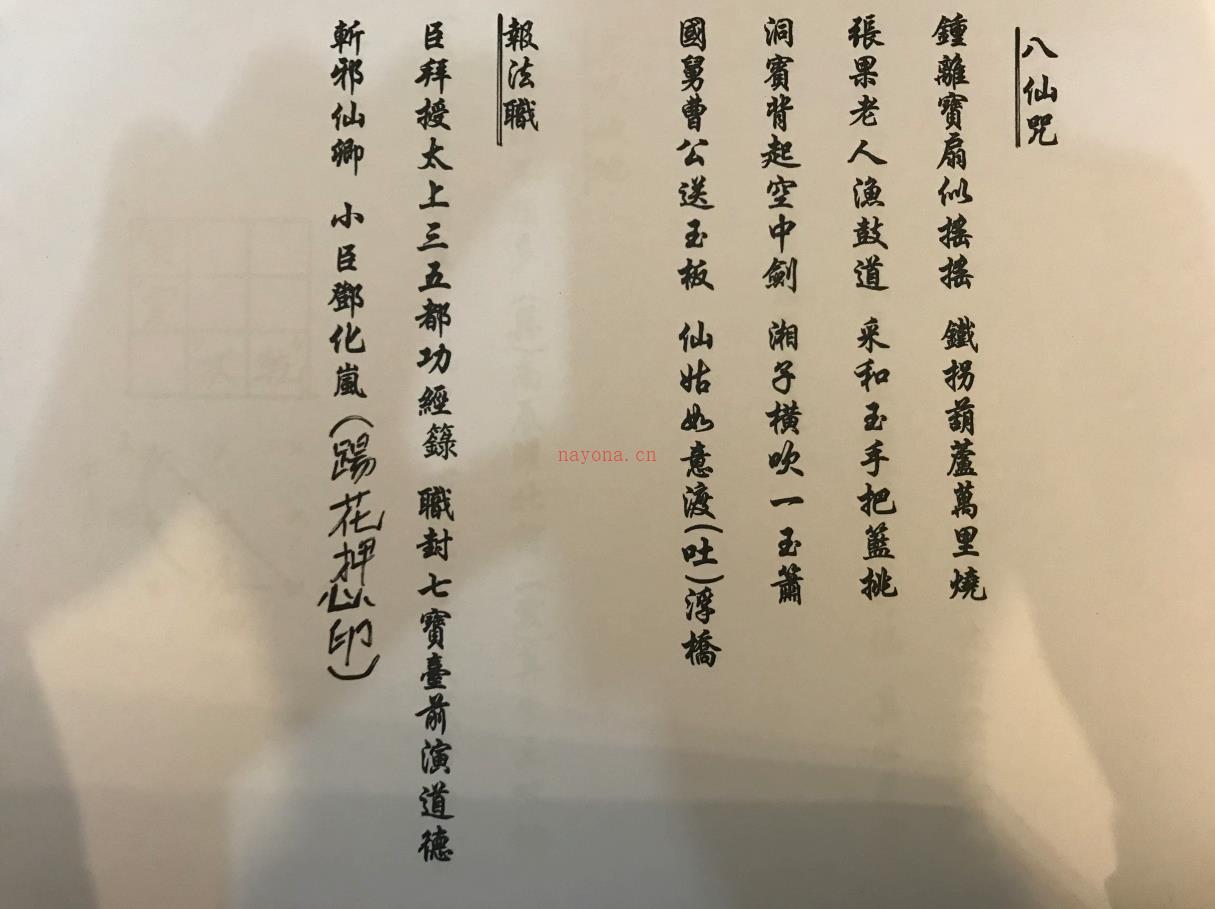 八仙咒
鍾離寶扇似搖搖 鐵拐葫蘆萬里燒
張果老人漁鼓道 采和玉手把籃挑
洞賓背起空中劍 湘子橫吹一玉簫
國舅曹公送玉板 仙姑如意渡(吐)浮橋
報法職
臣拜授太上三五都功經籙 職封七寶臺前演道德
斬邪仙卿 小臣鄧化嵐(踢花押心印)
nayona.cn